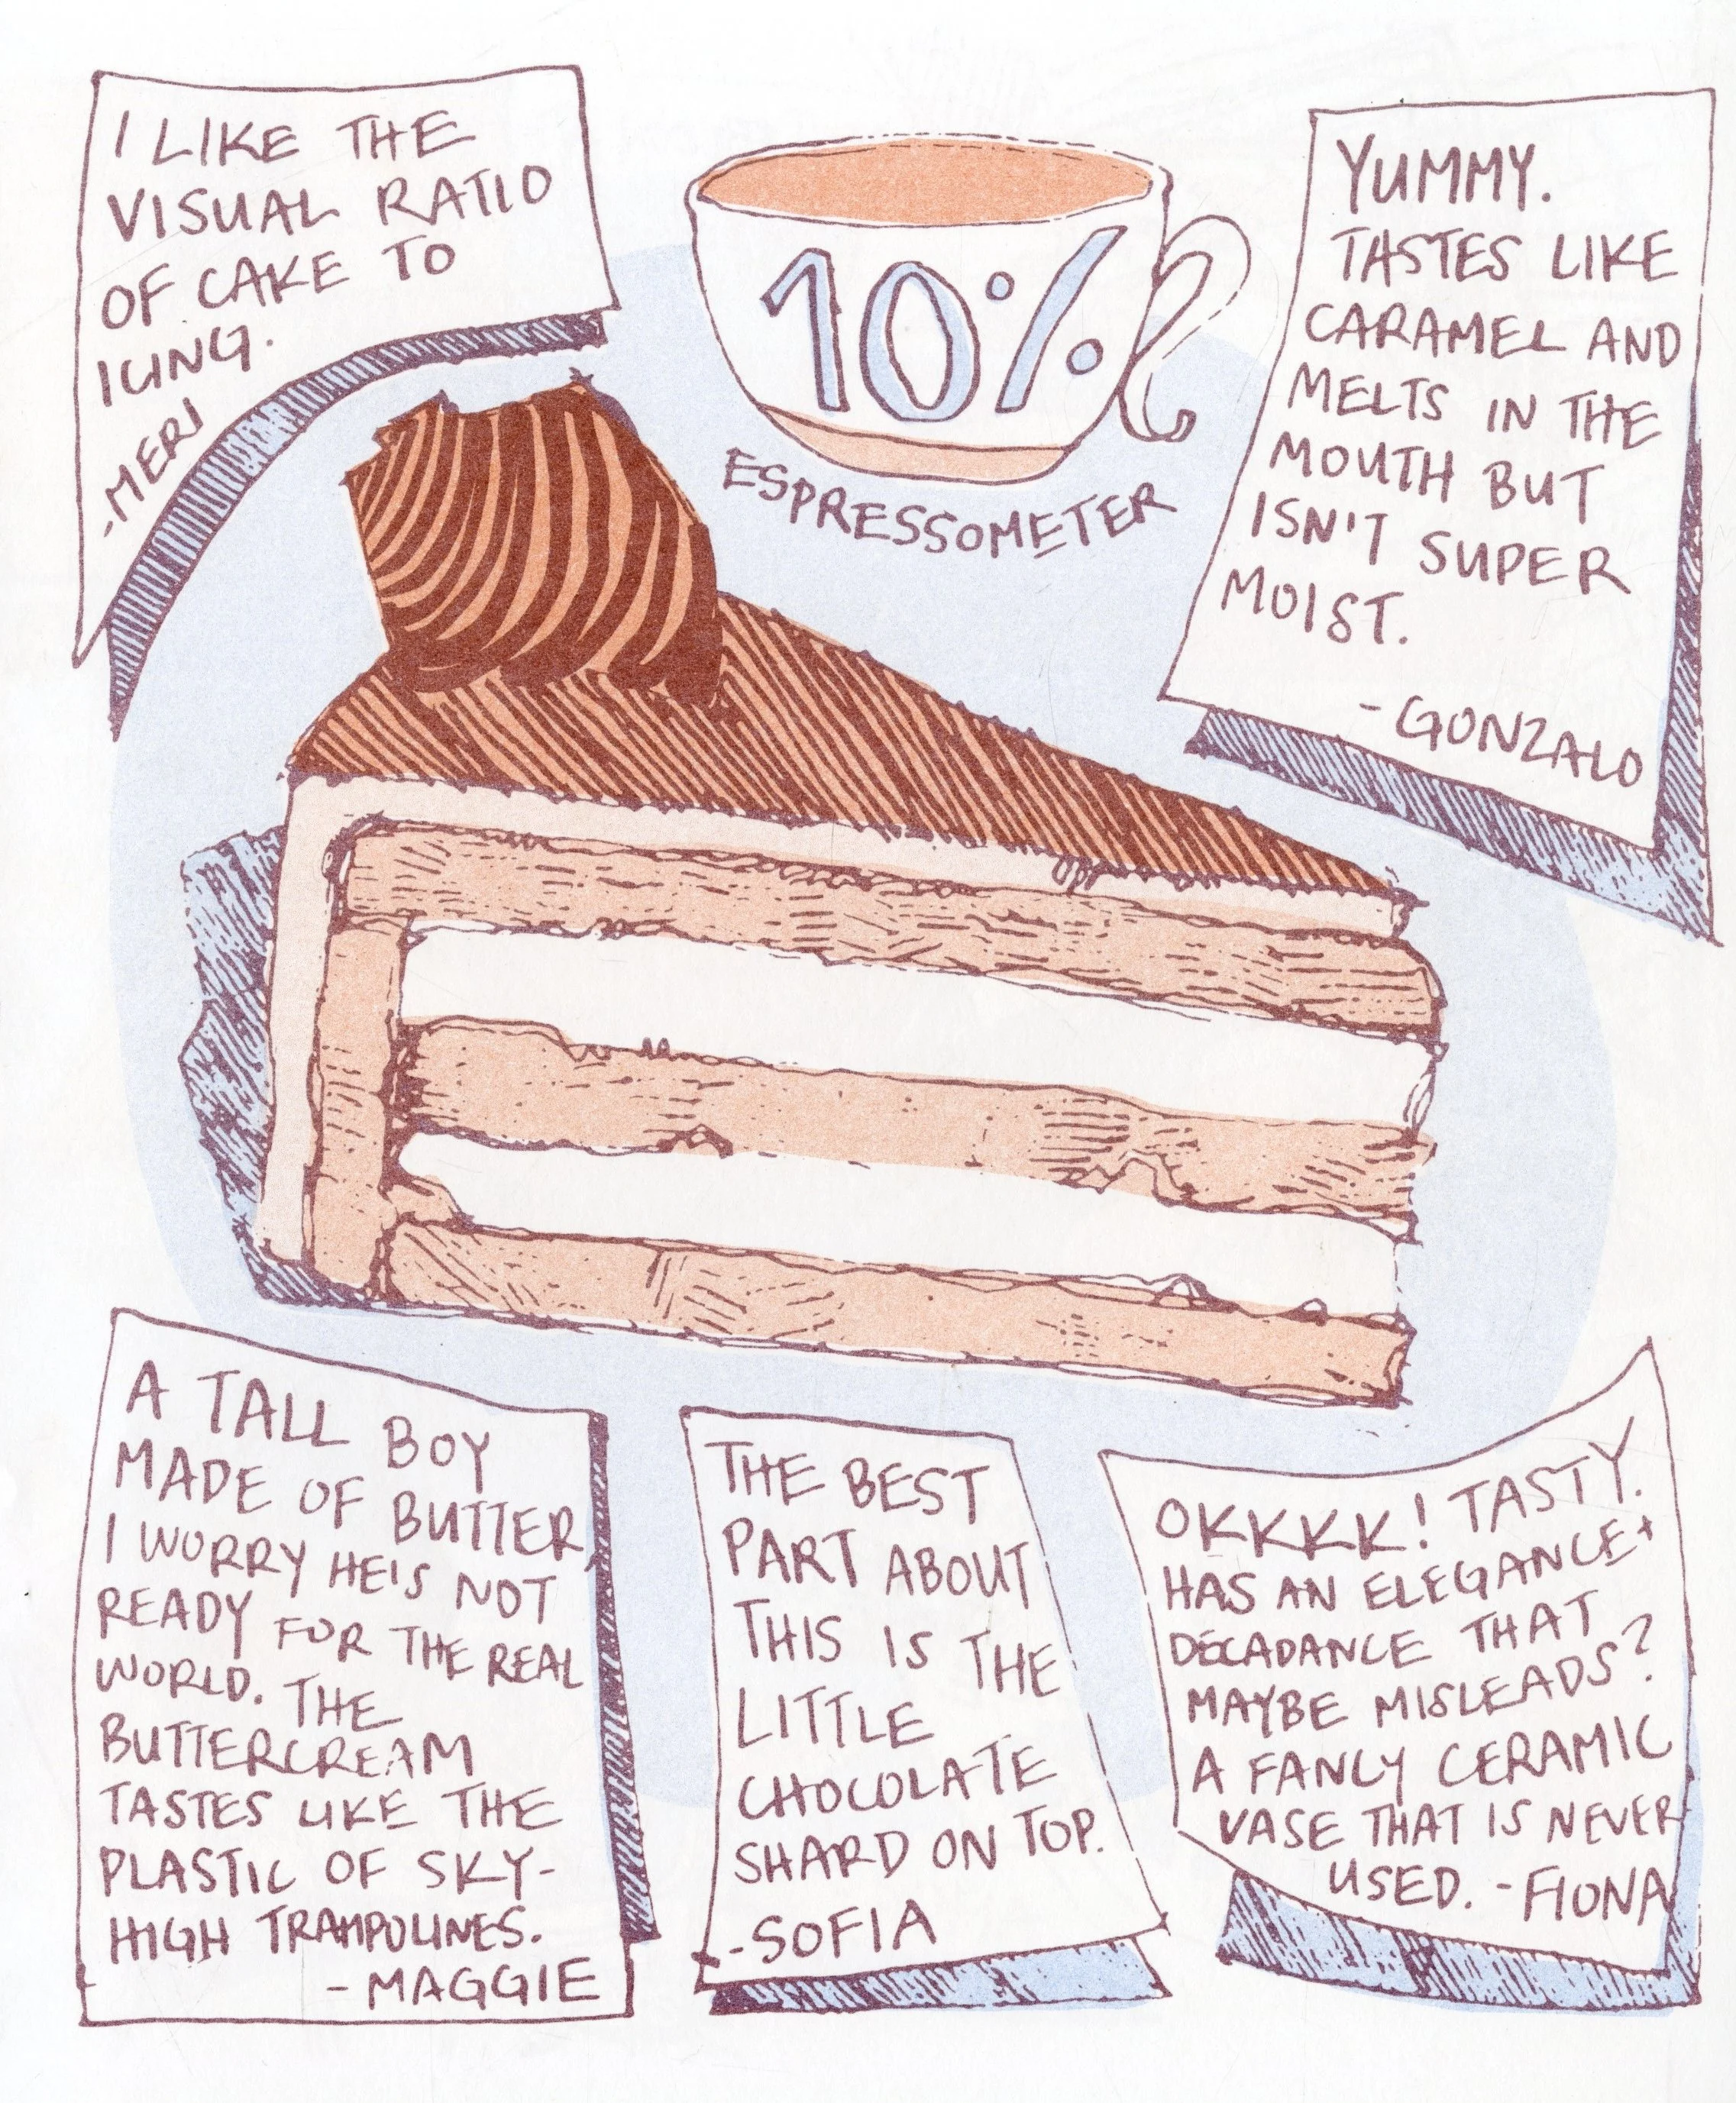 I LIKE THE
VISUAL RATIO
OF CAKE TO
ICING.
-MERI
10%
ESPRESSOMETER
YUMMY.
TASTES LIKE
CARAMEL AND
MELTS IN THE
MOUTH BUT
ISN'T SUPER
MOIST.
-GONZALO
A TALL BOY
MADE OF BUTTER,
I WORRY HE'S NOT
READY FOR THE REAL
WORLD. THE
BUTTERCREAM
TASTES LIKE THE
PLASTIC OF SKY-
HIGH TRAMPOLINES.
-MAGGIE
THE BEST
PART ABOUT
THIS IS THE
LITTLE
CHOCOLATE
SHARD ON TOP.
-SOFIA
OKKKK! TASTY.
HAS AN ELEGANCE+
DECADANCE THAT
MAYBE MISLEADS?
A FANCY CERAMIC
VASE THAT IS NEVER
USED. -FIONA